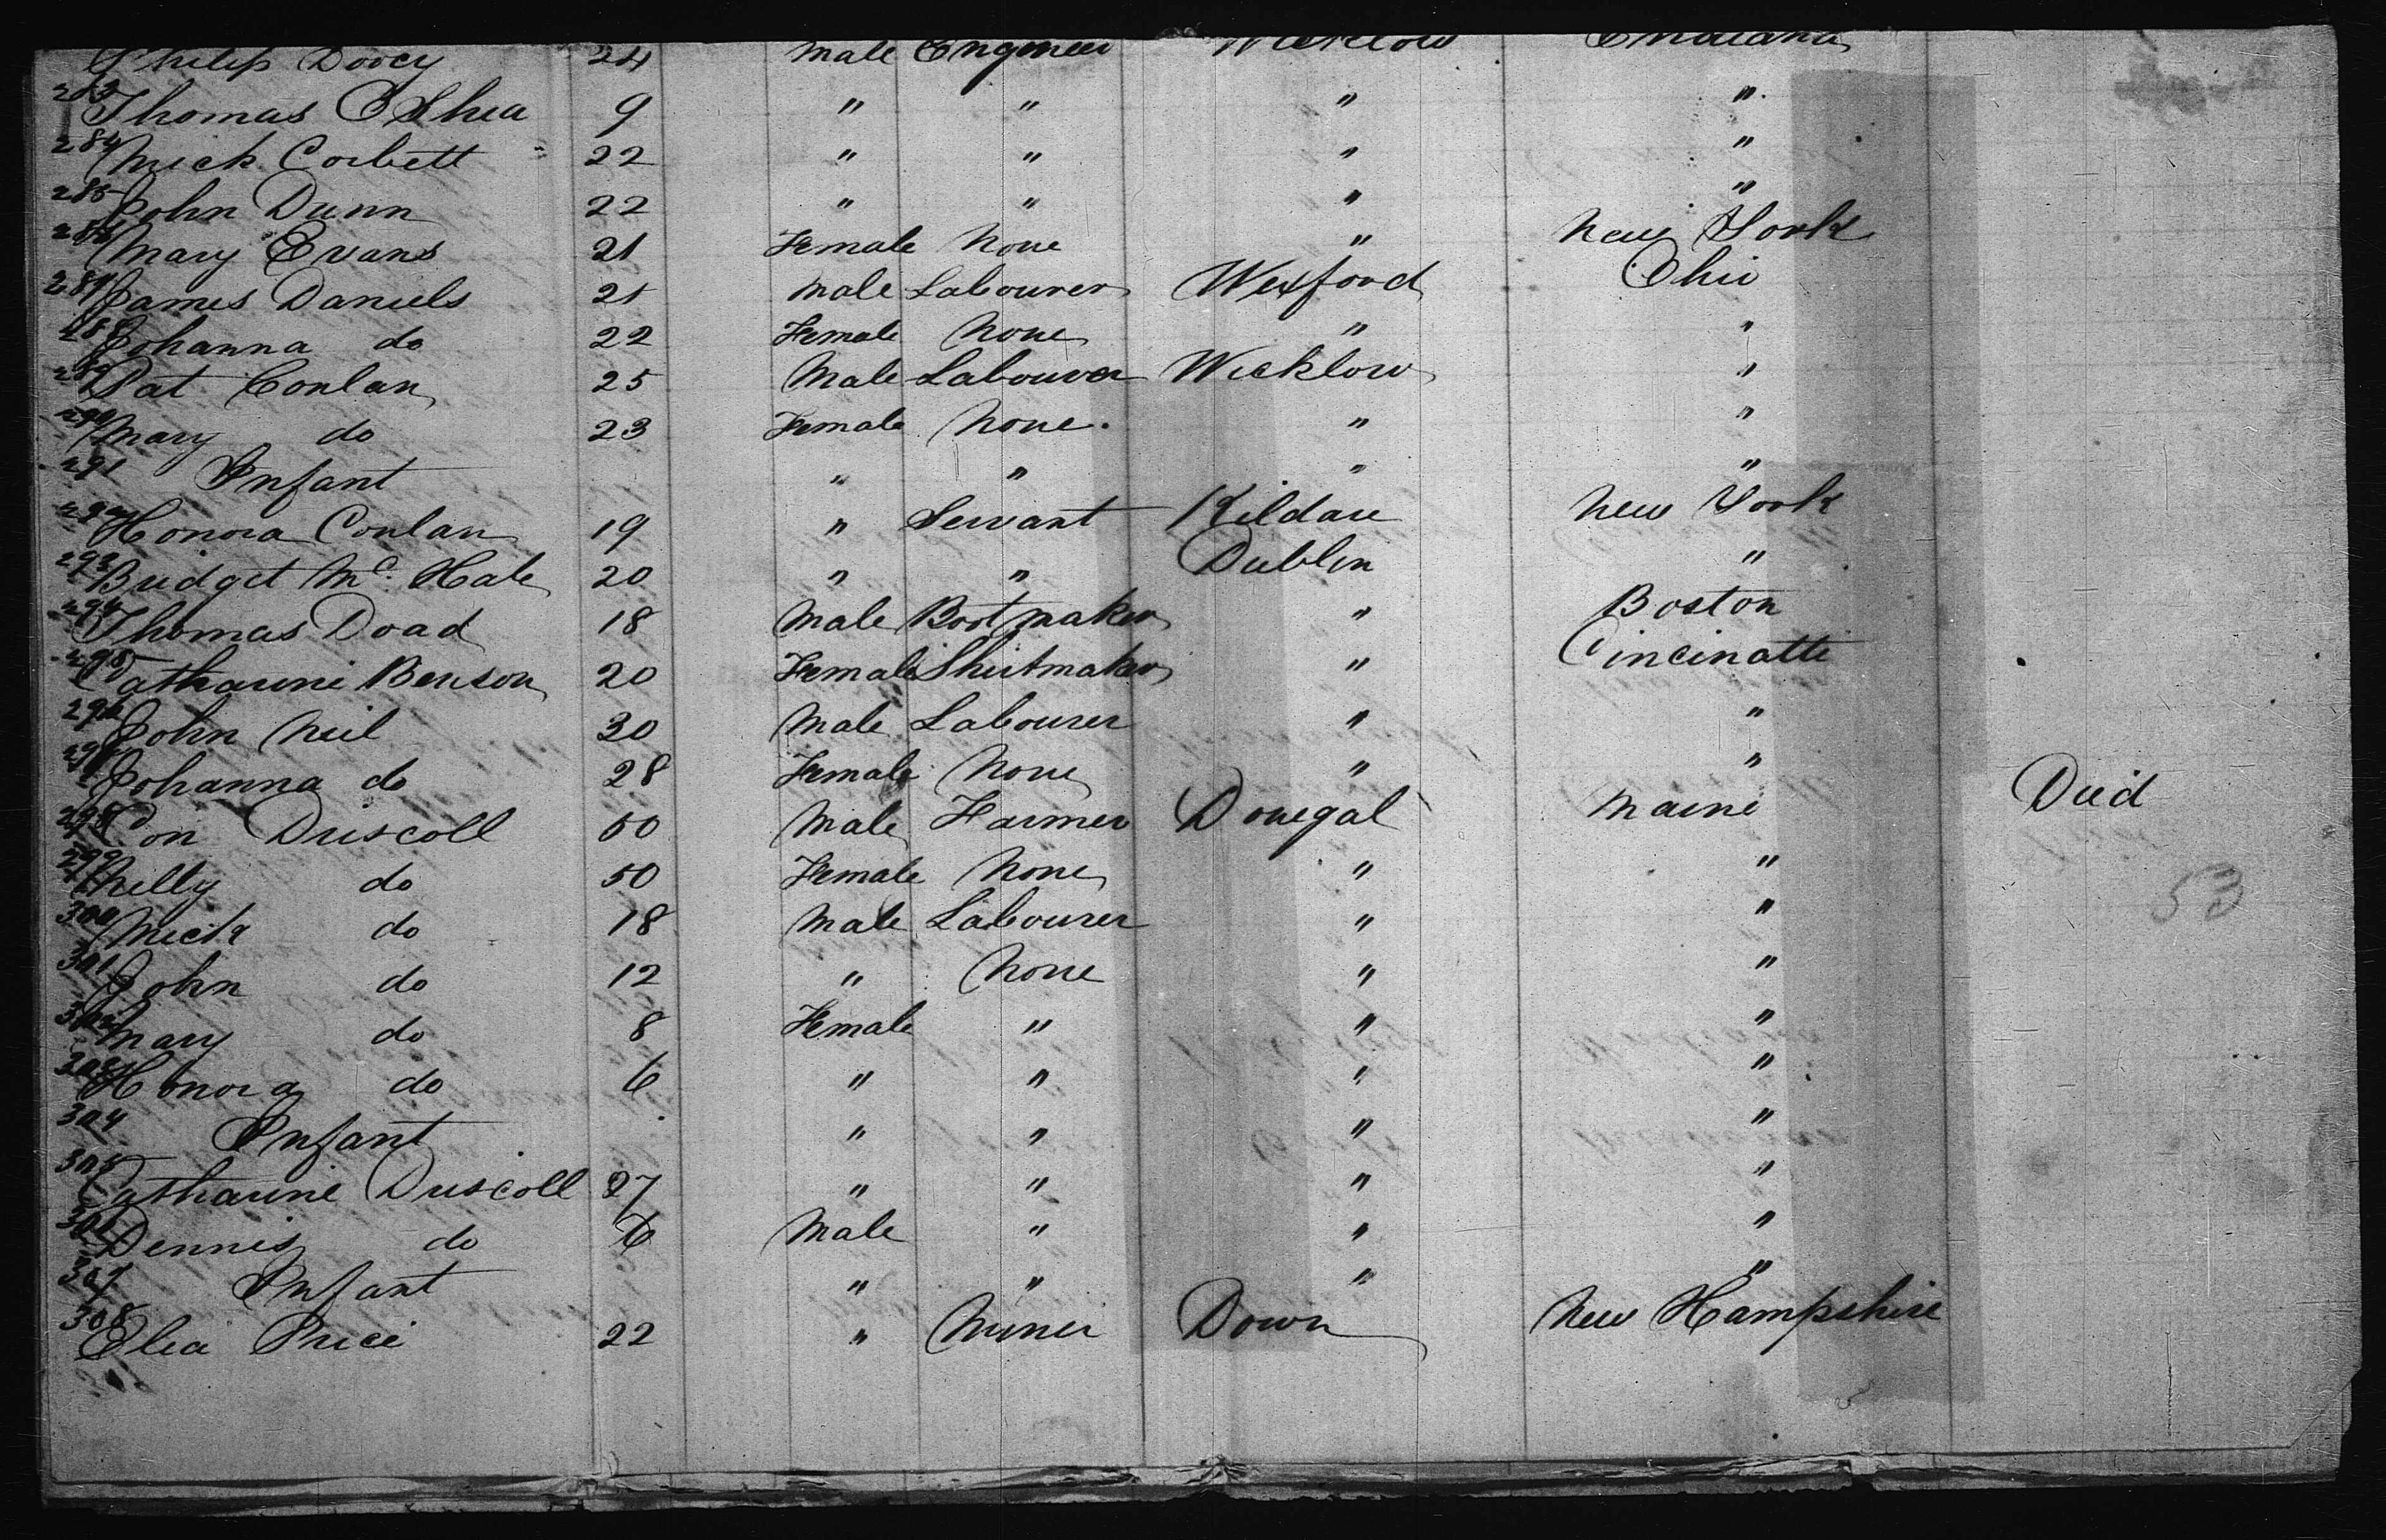 Philip Doocy 24 Male Engineer Wicklow Indiana
283 Thomas O Shea 9 " " " "
284 Mick Corbett 22 " " " "
285 John Dunn 22 " " " "
286 Mary Evans 21 Female None " New York
287 James Daniels 21 Male Labourer Wexford Ohio
288 Johanna do 22 Female None " "
289 Pat Conlan 25 Male Labourer Wicklow "
290 Mary do 23 Female None " "
291 Infant " " " "
292 Honora Conlan 19 " Servant Kildare New York
293 Bridget Mc. Hale 20 " " Dublin "
294 Thomas Doad 18 Male Bootmaker " Boston
295 Catharine Benson 20 Female Shirtmaker " Cincinatti
296 John Neil 30 Male Labourer " "
297 Johanna do 28 Female None " "
298 Con Driscoll 50 Male Farmer Donegal Maine Died
299 Nelly do 50 Female None " "
300 Mick do 18 Male Labourer " "
301 John do 12 " None " "
302 Mary do 8 Female " " "
303 Honora do 6 " " " "
304 Infant " " " "
305 Catharine Driscoll 27 " " " "
306 Dennis do 6 Male " " "
307 Infant " " " "
308 Elea Price 22 " Miner Down New Hampshire
53